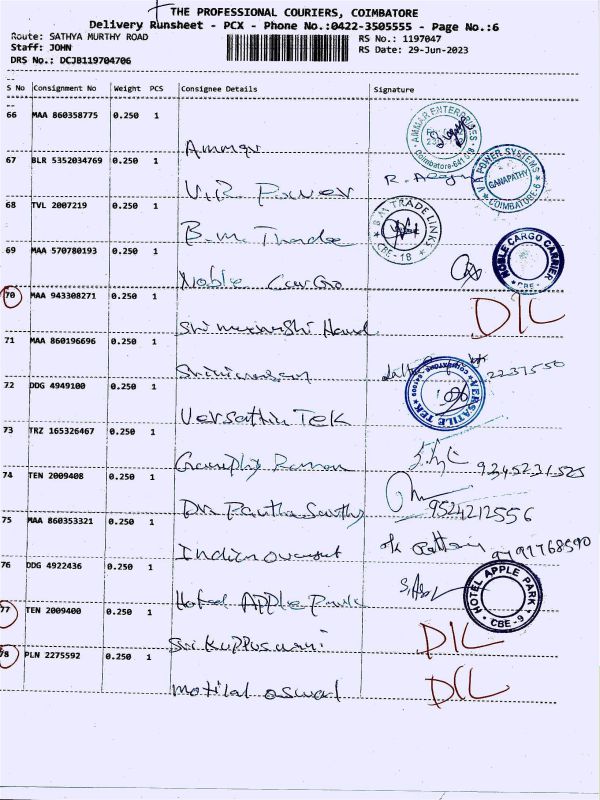 THE PROFESSIONAL COURIERS, COIMBATORE
Delivery Runsheet - PCX - Phone No.:0422-3505555 - Page No.:6
Route: SATHYA MURTHY ROAD RS No.: 1197047
Staff: JOHN RS Date: 29-Jun-2023
DRS No.: DCJB119704706
S No Consignment No Weight PCS Consignee Details Signature
66 MAA 860358775 0.250 1 Ammar AMMAR ENTERPRISES Coimbatore-641 018
67 BLR 5352034769 0.250 1 V.R. Power R. V A POWER SYSTEMS GANAPATHY COIMBATORE-6
68 TVL 2007219 0.250 1 B.M. Thrade B.M TRADE LINKS CBE-18
69 MAA 570780193 0.250 1 Noble Cargo NOBLE CARGO CARRIER CBE
70 MAA 943308271 0.250 1 DIL
71 MAA 860196696 0.250 1 Srinivasan 2237550
72 DDG 4949100 0.250 1 Versathin TEK VERSATILE TEK COIMBATORE
73 TRZ 165326467 0.250 1 Raman
74 TEN 2009408 0.250 1 DR Partha Sarthy 9524212556
75 MAA 860353321 0.250 1
76 DDG 4922436 0.250 1 Hotel APPle Park HOTEL APPLE PARK CBE-9
77 TEN 2009400 0.250 1 Sri.Kuppusami DIL
78 PLN 2275592 0.250 1 motilal oswal DIL